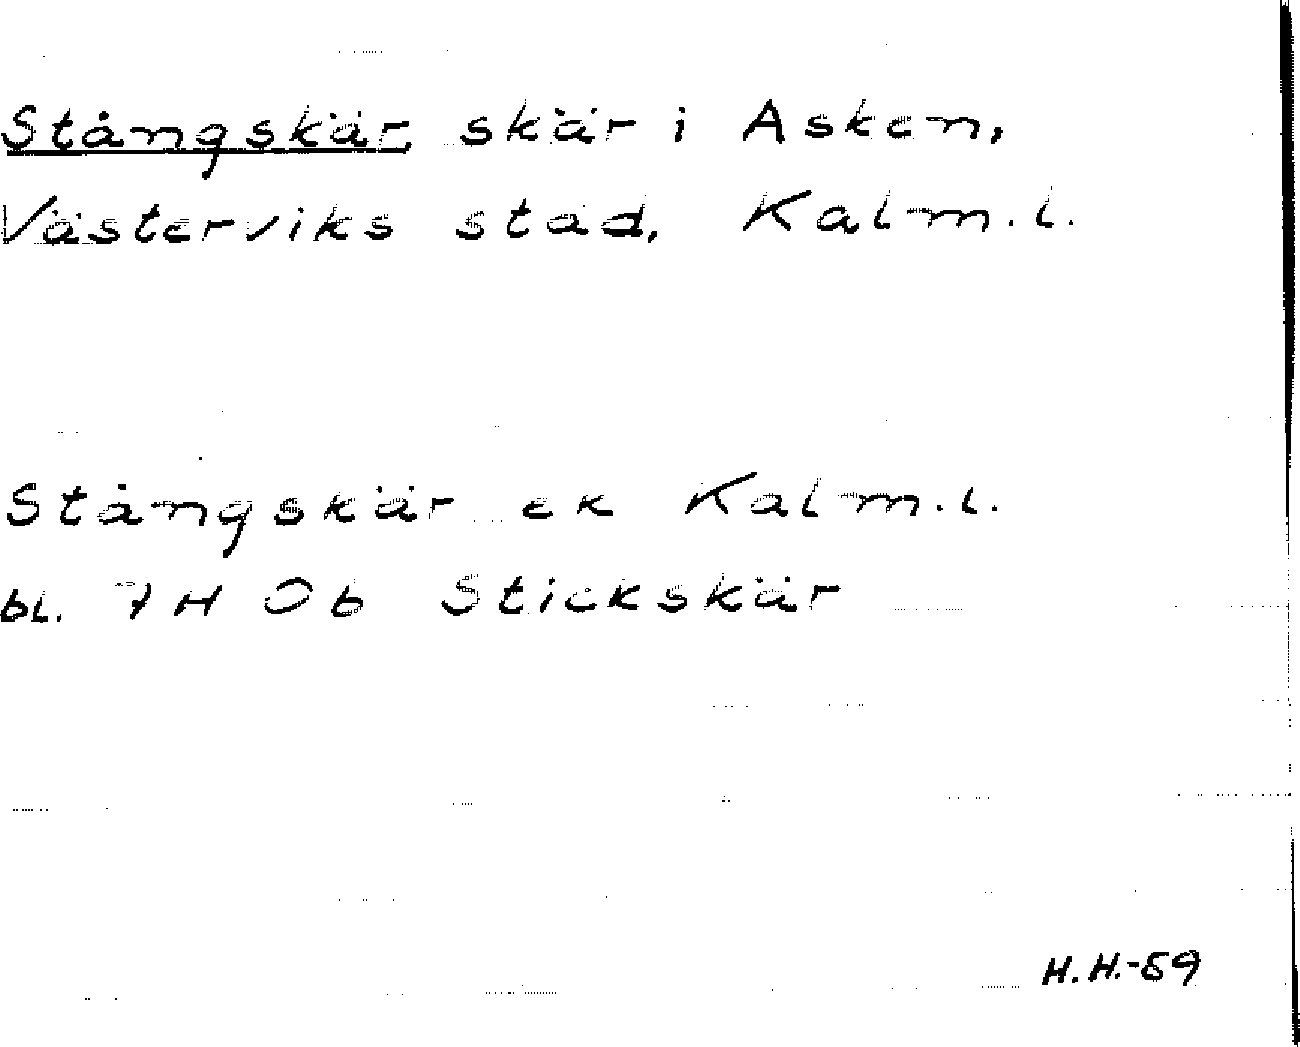 Stångskär, skär i Asken,
Västerviks stad, Kalm.l.
Stångskär ek Kalm.l.
bl. 7H Ob Stickskär
H.H.-59